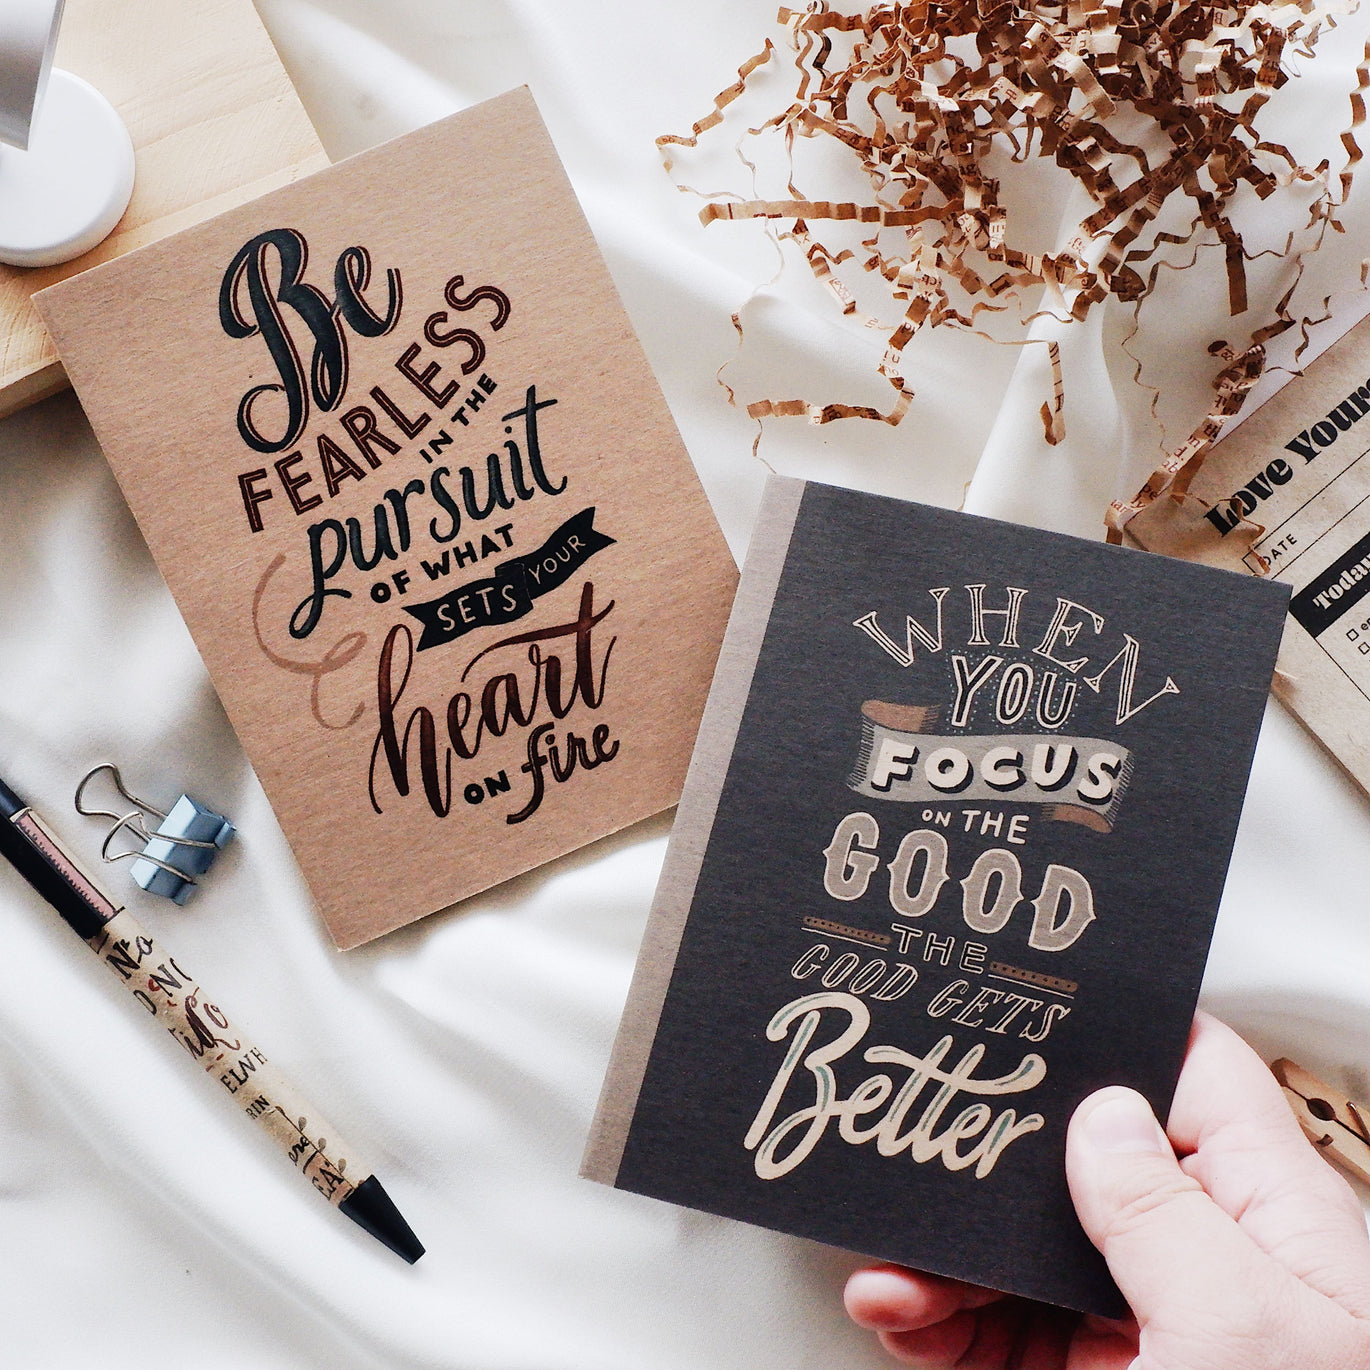 Be
FEARLESS
IN THE
pursuit
OF WHAT
SETS YOUR
heart
ON fire
WHEN
YOU
FOCUS
ON THE
GOOD
THE
GOOD GETS
Better
Love Your
DATE
Today